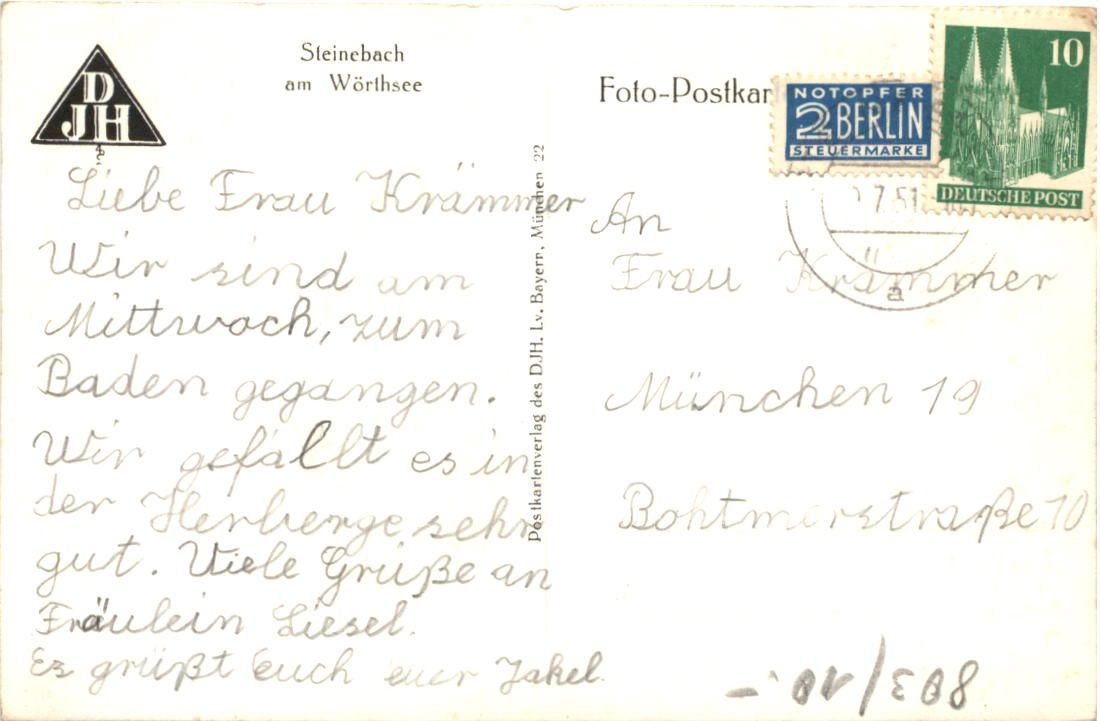 DJH
Steinebach
am Wörthsee
Liebe Frau Krämmer
Wir sind am
Mittwoch, zum
Baden gegangen.
Wir gefällt es in
der Herberge sehr
gut. Viele Grüße an
Fräulein Liesel.
Es grüßt euch euer Jakel.
Postkartenverlag des DJH. Lv. Bayern, München 22
Foto-Postkar
NOTOPFER
2 BERLIN
STEUERMARKE
10
DEUTSCHE POST
7.51
a
An
Frau Krämmer
München 19
Bohtmerstraße 10
803/10.-